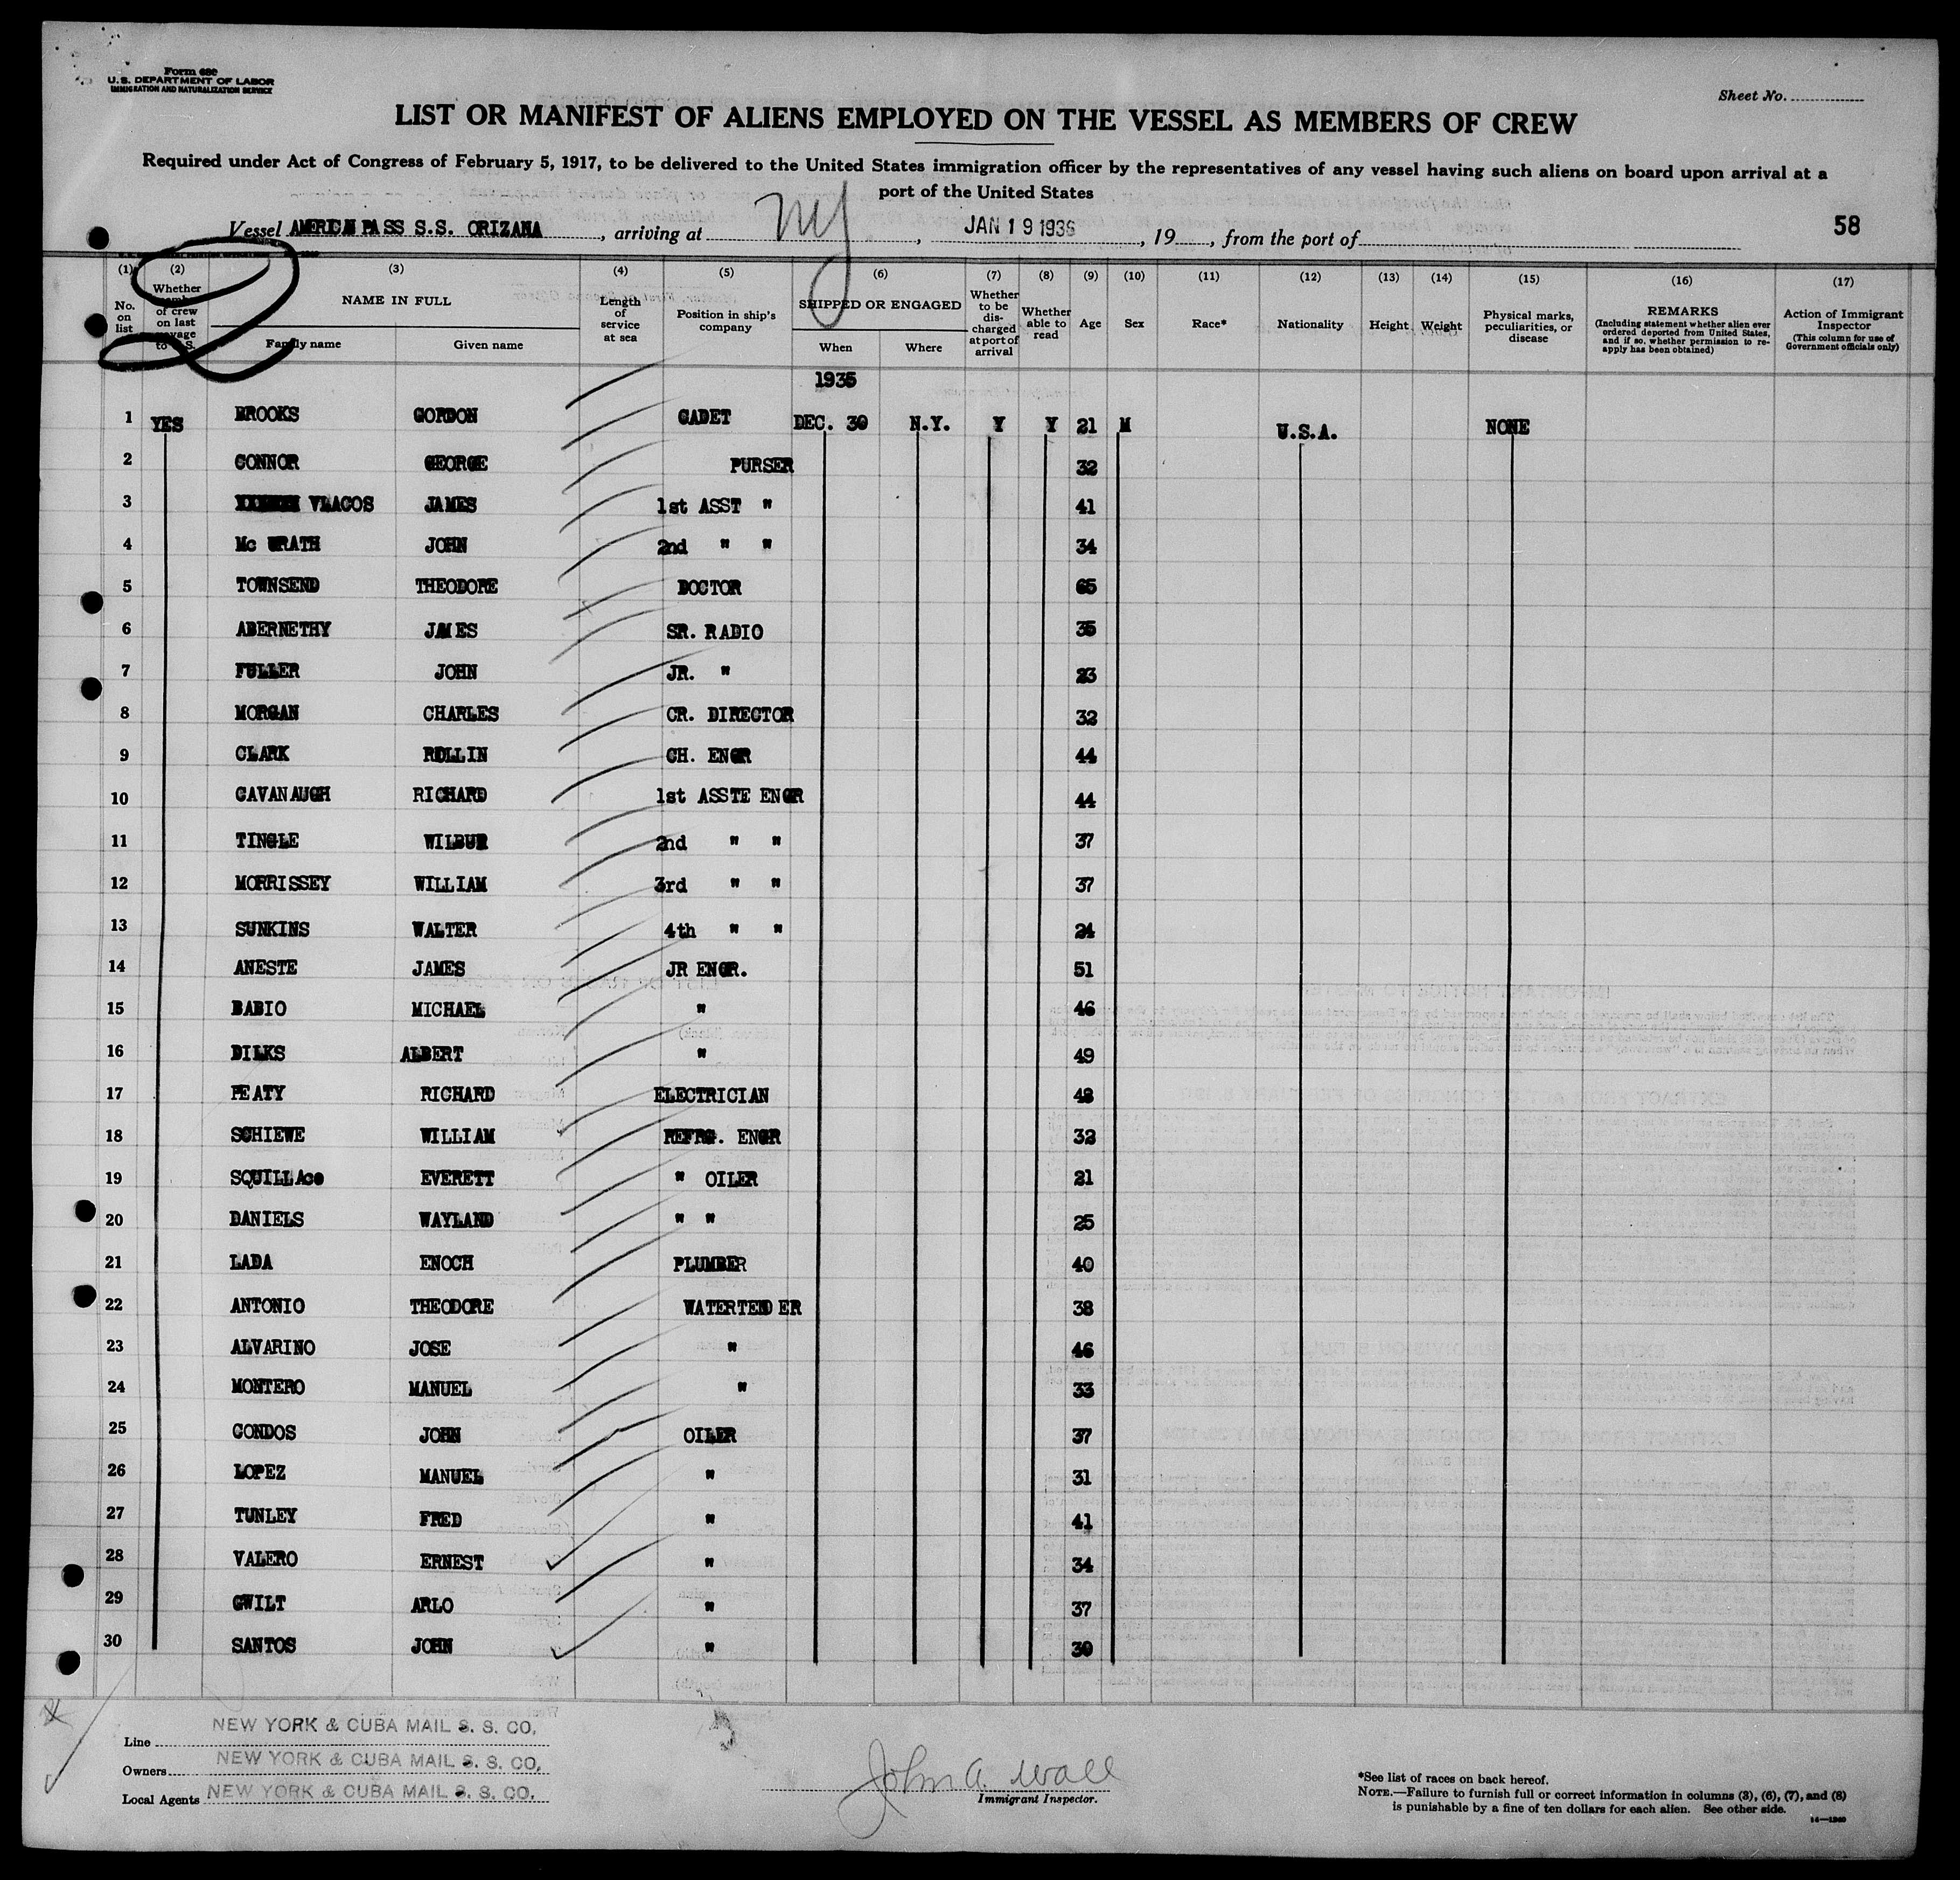 Form 680
U.S. DEPARTMENT OF LABOR
IMMIGRATION AND NATURALIZATION SERVICE
Sheet No.
LIST OR MANIFEST OF ALIENS EMPLOYED ON THE VESSEL AS MEMBERS OF CREW
Required under Act of Congress of February 5, 1917, to be delivered to the United States immigration officer by the representatives of any vessel having such aliens on board upon arrival at a
port of the United States
Vessel AMERICAN PASS S.S. ORIZANA, arriving at NY, JAN 19 1936, 19, from the port of 58
(1) (2) (3) (4) (5) (6) (7) (8) (9) (10) (11) (12) (13) (14) (15) (16) (17)
No. on list
Whether member of crew on last voyage to U.S.
NAME IN FULL
Family name Given name
Length of service at sea
Position in ship's company
SHIPPED OR ENGAGED
When Where
Whether to be discharged at port of arrival
Whether able to read
Age
Sex
Race*
Nationality
Height
Weight
Physical marks, peculiarities, or disease
REMARKS
(Including statement whether alien ever ordered deported from United States, and if so, whether permission to re-apply has been obtained)
Action of Immigrant Inspector
(This column for use of Government officials only)
1935
1 YES BROOKS GORDON CADET DEC. 30 N.Y. Y Y 21 M U.S.A. NONE
2 CONNOR GEORGE PURSER 32
3 VLACOS JAMES 1st ASST " 41
4 Mc GRATH JOHN 2nd " " 34
5 TOWNSEND THEODORE DOCTOR 65
6 ABERNETHY JAMES SR. RADIO 35
7 FULLER JOHN JR. " 23
8 MORGAN CHARLES CR. DIRECTOR 32
9 CLARK ROLLIN CH. ENGR 44
10 CAVANAUGH RICHARD 1st ASSTE ENGR 44
11 TINGLE WILBUR 2nd " " 37
12 MORRISSEY WILLIAM 3rd " " 37
13 SUNKINS WALTER 4th " " 24
14 ANESTE JAMES JR ENGR. 51
15 BABIO MICHAEL " 46
16 DILKS ALBERT " 49
17 PEATY RICHARD ELECTRICIAN 48
18 SCHIEWE WILLIAM REFRG. ENGR 32
19 SQUILLAce EVERETT " OILER 21
20 DANIELS WAYLAND " " 25
21 LADA ENOCH PLUMBER 40
22 ANTONIO THEODORE WATERTENDER 38
23 ALVARINO JOSE " 46
24 MONTERO MANUEL " 33
25 CONDOS JOHN OILER 37
26 LOPEZ MANUEL " 31
27 TUNLEY FRED " 41
28 VALERO ERNEST " 34
29 GWILT ARLO " 37
30 SANTOS JOHN " 30
Line NEW YORK & CUBA MAIL S. S. CO.
Owners NEW YORK & CUBA MAIL S. S. CO.
Local Agents NEW YORK & CUBA MAIL S. S. CO.
John A. Wall
Immigrant Inspector.
*See list of races on back hereof.
NOTE.—Failure to furnish full or correct information in columns (3), (6), (7), and (8)
is punishable by a fine of ten dollars for each alien. See other side.